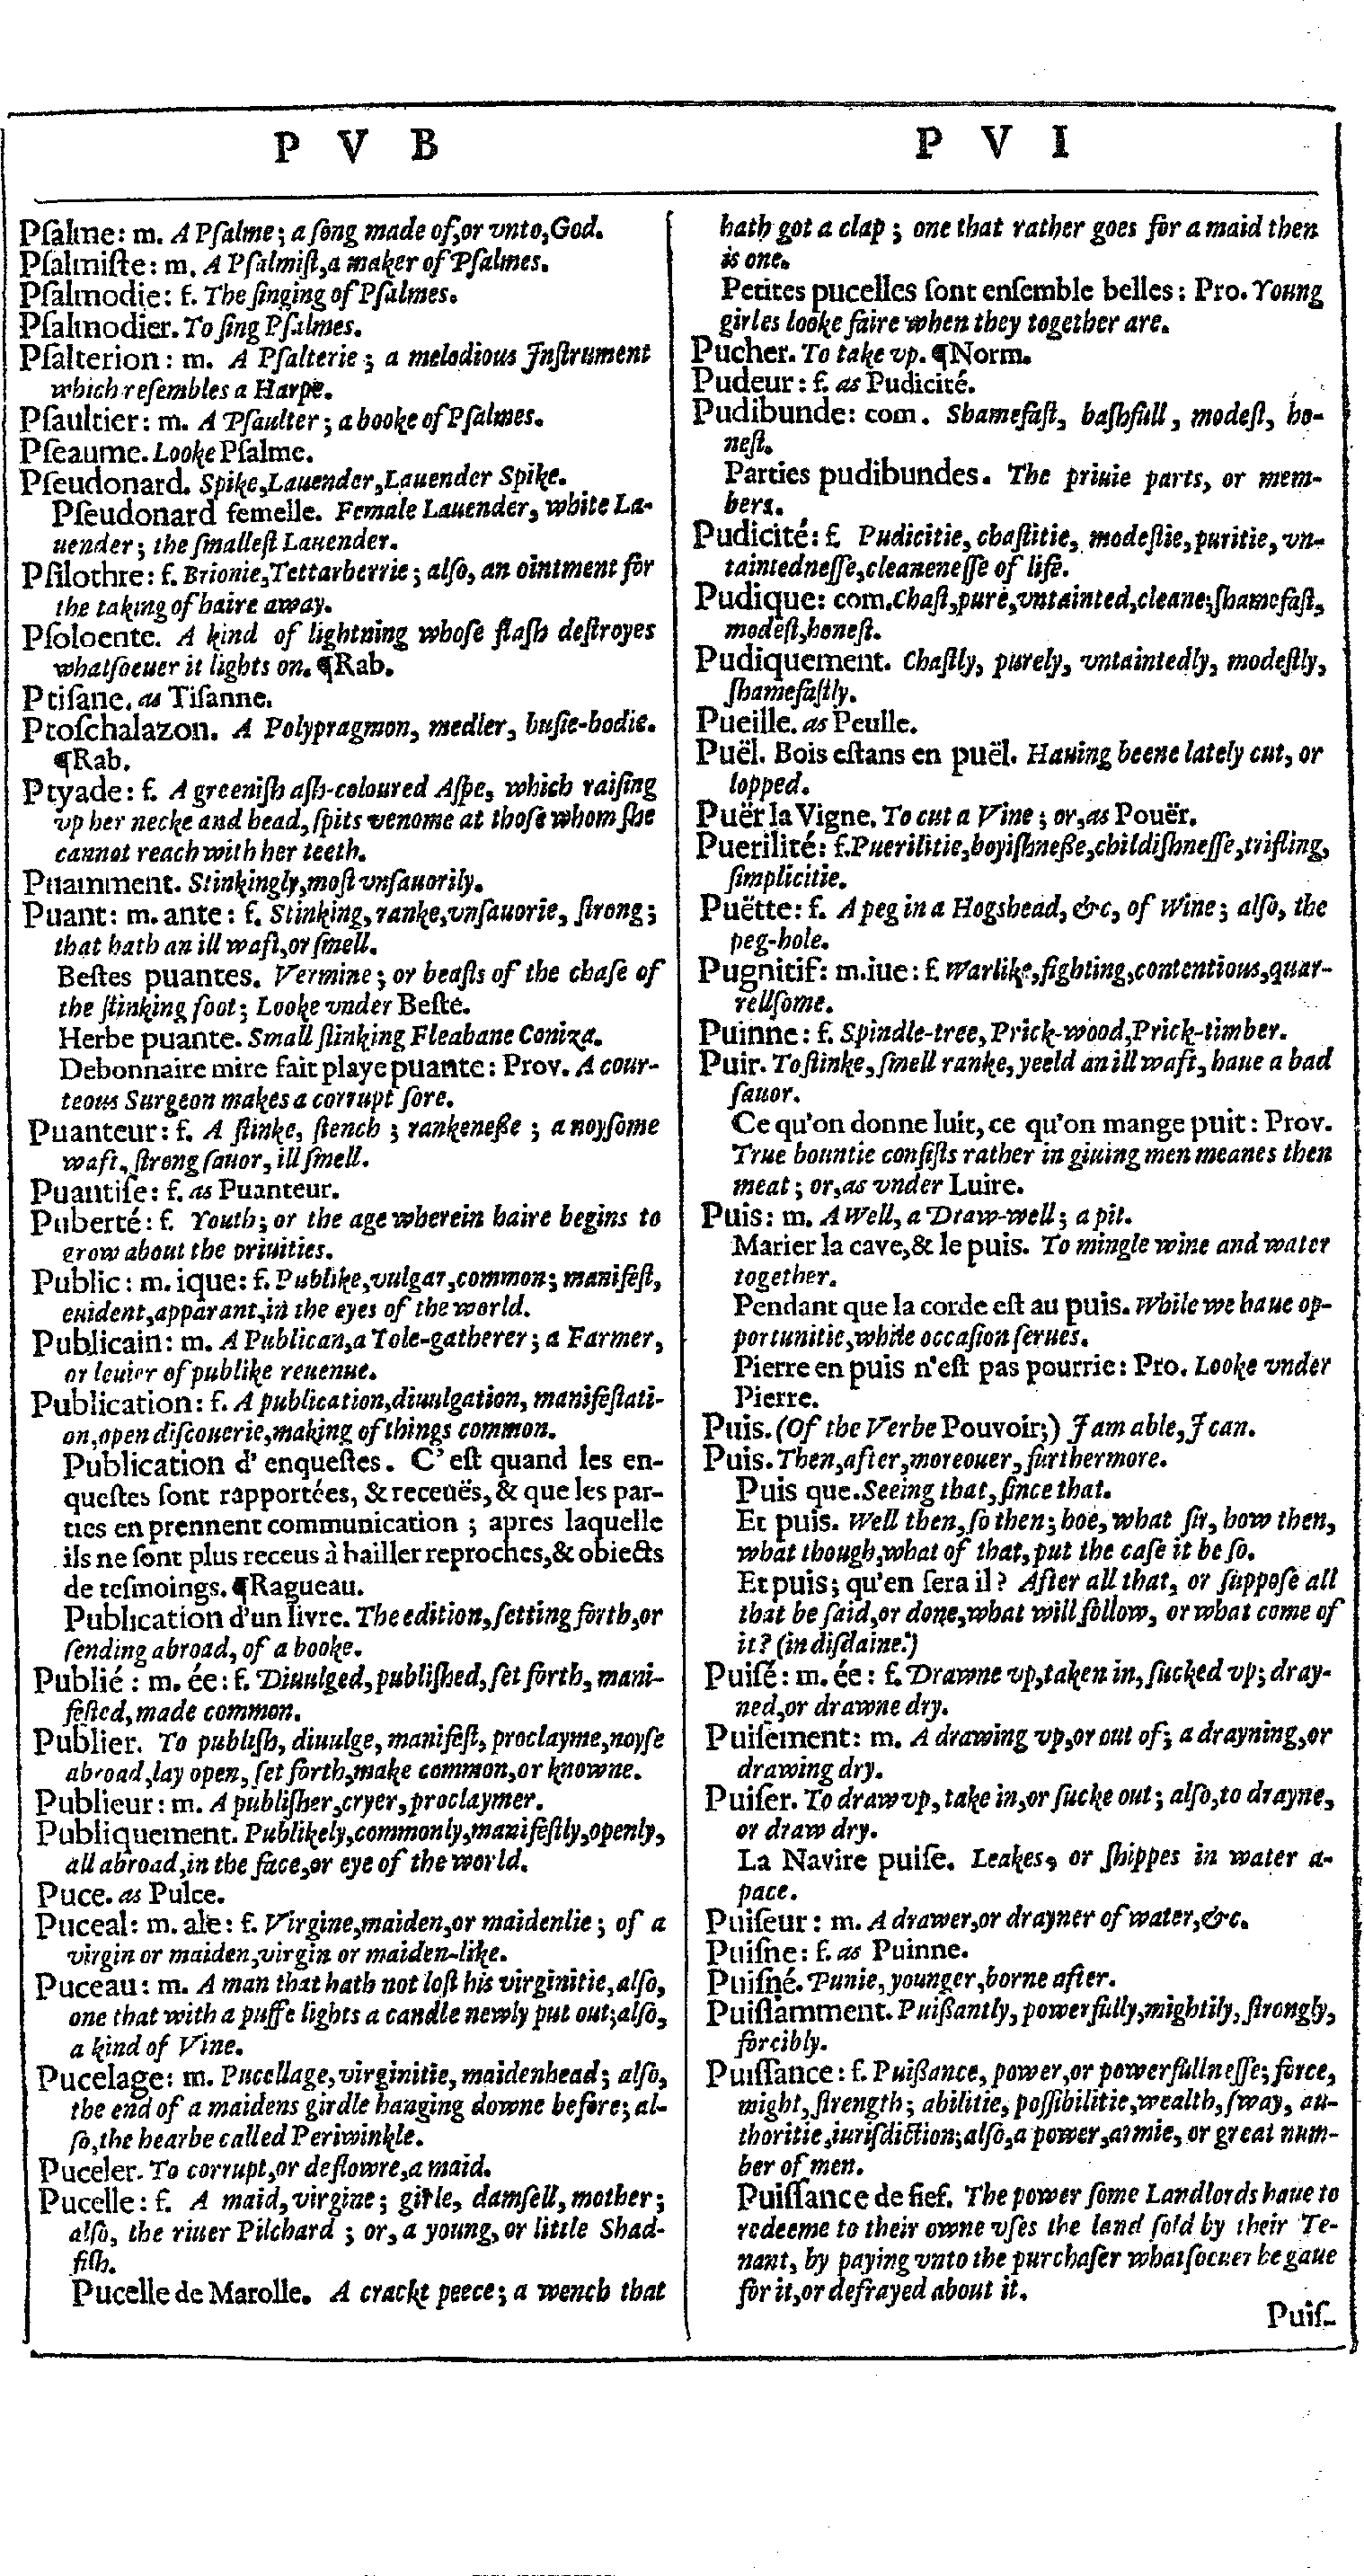 P V B
Pſalme: m. A Pſalme; a ſong made of, or vnto, God.
Pſalmiſte: m. A Pſalmiſt, a maker of Pſalmes.
Pſalmodie: f. The ſinging of Pſalmes.
Pſalmodier. To ſing Pſalmes.
Pſalterion: m. A Pſalterie; a melodious Inſtrument
which reſembles a Harpe.
Pſaultier: m. A Pſaulter; a booke of Pſalmes.
Pſeaume. Looke Pſalme.
Pſeudonard. Spike, Lauender, Lauender Spike.
Pſeudonard femelle. Female Lauender, white La-
uender; the ſmalleſt Lauender.
Pſilothre: f. Brionie, Tettarberrie; alſo, an ointment for
the taking of haire away.
Pſoloente. A kind of lightning whoſe flaſh deſtroyes
whatſoeuer it lights on. ¶Rab.
Ptiſane. as Tiſanne.
Ptoſchalazon. A Polypragmon, medler, buſie-bodie.
¶Rab.
Ptyade: f. A greeniſh aſh-coloured Aſpe, which raiſing
vp her necke and head, ſpits venome at thoſe whom ſhe
cannot reach with her teeth.
Puamment. Stinkingly, moſt vnſauorily.
Puant: m. ante: f. Stinking, ranke, vnſauorie, ſtrong;
that hath an ill waſt, or ſmell.
Beſtes puantes. Vermine; or beaſts of the chaſe of
the ſtinking foot; Looke vnder Beſte.
Herbe puante. Small ſtinking Fleabane Coniza.
Debonnaire mire fait playe puante: Prov. A cour-
teous Surgeon makes a corrupt ſore.
Puanteur: f. A ſtinke, ſtench; rankeneße; a noyſome
waft, ſtrong ſauor, ill ſmell.
Puantiſe: f. as Puanteur.
Puberté: f. Youth; or the age wherein haire begins to
grow about the priuities.
Public: m. ique: f. Publike, vulgar, common; manifeſt,
euident, apparant, in the eyes of the world.
Publicain: m. A Publican, a Tole-gatherer; a Farmer,
or leuier of publike reuenue.
Publication: f. A publication, diuulgation, manifeſtati-
on, open diſcouerie, making of things common.
Publication d' enqueſtes. C' eſt quand les en-
queſtes ſont rapportées, & receuës, & que les par-
ties en prennent communication; apres laquelle
ils ne ſont plus receus à bailler reproches, & obiects
de teſmoings. ¶Ragueau.
Publication d'un livre. The edition, ſetting forth, or
ſending abroad, of a booke.
Publié: m. ée: f. Diuulged, publiſhed, ſet forth, mani-
feſted, made common.
Publier. To publiſh, diuulge, manifeſt, proclayme, noyſe
abroad, lay open, ſet forth, make common, or knowne.
Publieur: m. A publiſher, cryer, proclaymer.
Publiquement. Publikely, commonly, manifeſtly, openly,
all abroad, in the face, or eye of the world.
Puce. as Pulce.
Puceal: m. ale: f. Virgine, maiden, or maidenlie; of a
virgin or maiden, virgin or maiden-like.
Puceau: m. A man that hath not loſt his virginitie, alſo,
one that with a puffe lights a candle newly put out; alſo,
a kind of Vine.
Pucelage: m. Pucellage, virginitie, maidenhead; alſo,
the end of a maidens girdle hanging downe before; al-
ſo, the hearbe called Periwinkle.
Puceler. To corrupt, or deflowre, a maid.
Pucelle: f. A maid, virgine; girle, damſell, mother;
alſo, the riuer Pilchard; or, a young, or little Shad-
fiſh.
Pucelle de Marolle. A crackt peece; a wench that
P V I
hath got a clap; one that rather goes for a maid then
is one.
Petites pucelles ſont enſemble belles: Pro. Young
girles looke faire when they together are.
Pucher. To take vp. ¶Norm.
Pudeur: f. as Pudicité.
Pudibunde: com. Shamefaſt, baſhfull, modeſt, ho-
neſt.
Parties pudibundes. The priuie parts, or mem-
bers.
Pudicité: f. Pudicitie, chaſtitie, modeſtie, puritie, vn-
taintedneſſe, cleaneneſſe of life.
Pudique: com. Chaſt, pure, vntainted, cleane; ſhamefaſt,
modeſt, honeſt.
Pudiquement. Chaſtly, purely, vntaintedly, modeſtly,
ſhamefaſtly.
Pueille. as Peulle.
Puël. Bois eſtans en puël. Hauing beene lately cut, or
lopped.
Puër la Vigne. To cut a Vine; or, as Pouër.
Puerilité: f. Puerilitie, boyiſhneße, childiſhneſſe, trifling,
ſimplicitie.
Puëtte: f. A peg in a Hogshead, &c, of Wine; alſo, the
peg-hole.
Pugnitif: m. iue: f. Warlike, fighting, contentious, quar-
rellſome.
Puinne: f. Spindle-tree, Prick-wood, Prick-timber.
Puir. To ſtinke, ſmell ranke, yeeld an ill waft, haue a bad
ſauor.
Ce qu'on donne luit, ce qu'on mange puit: Prov.
True bountie conſiſts rather in giuing men meanes then
meat; or, as vnder Luire.
Puis: m. A Well, a Draw-well; a pit.
Marier la cave, & le puis. To mingle wine and water
together.
Pendant que la corde eſt au puis. While we haue op-
portunitie, while occaſion ſerues.
Pierre en puis n'eſt pas pourrie: Pro. Looke vnder
Pierre.
Puis. (Of the Verbe Pouvoir;) I am able, I can.
Puis. Then, after, moreouer, furthermore.
Puis que. Seeing that, ſince that.
Et puis. Well then, ſo then; hoe, what ſir, how then,
what though, what of that, put the caſe it be ſo.
Et puis; qu'en ſera il? After all that, or ſuppoſe all
that be ſaid, or done, what will follow, or what come of
it? (in diſdaine.)
Puiſé: m. ée: f. Drawne vp, taken in, ſucked vp; dray-
ned, or drawne dry.
Puiſement: m. A drawing vp, or out of; a drayning, or
drawing dry.
Puiſer. To draw vp, take in, or ſucke out; alſo, to drayne,
or draw dry.
La Navire puiſe. Leakes, or ſhippes in water a-
pace.
Puiſeur: m. A drawer, or drayner of water, &c.
Puiſne: f. as Puinne.
Puiſné. Punie, younger, borne after.
Puiſſamment. Puißantly, powerfully, mightily, ſtrongly,
forcibly.
Puiſſance: f. Puißance, power, or powerfullneſſe; force,
might, ſtrength; abilitie, poſſibilitie, wealth, ſway, au-
thoritie, iuriſdiction; alſo, a power, armie, or great num-
ber of men.
Puiſſance de fief. The power ſome Landlords haue to
redeeme to their owne vſes the land ſold by their Te-
nant, by paying vnto the purchaſer whatſoeuer he gaue
for it, or defrayed about it.
Puiſ-